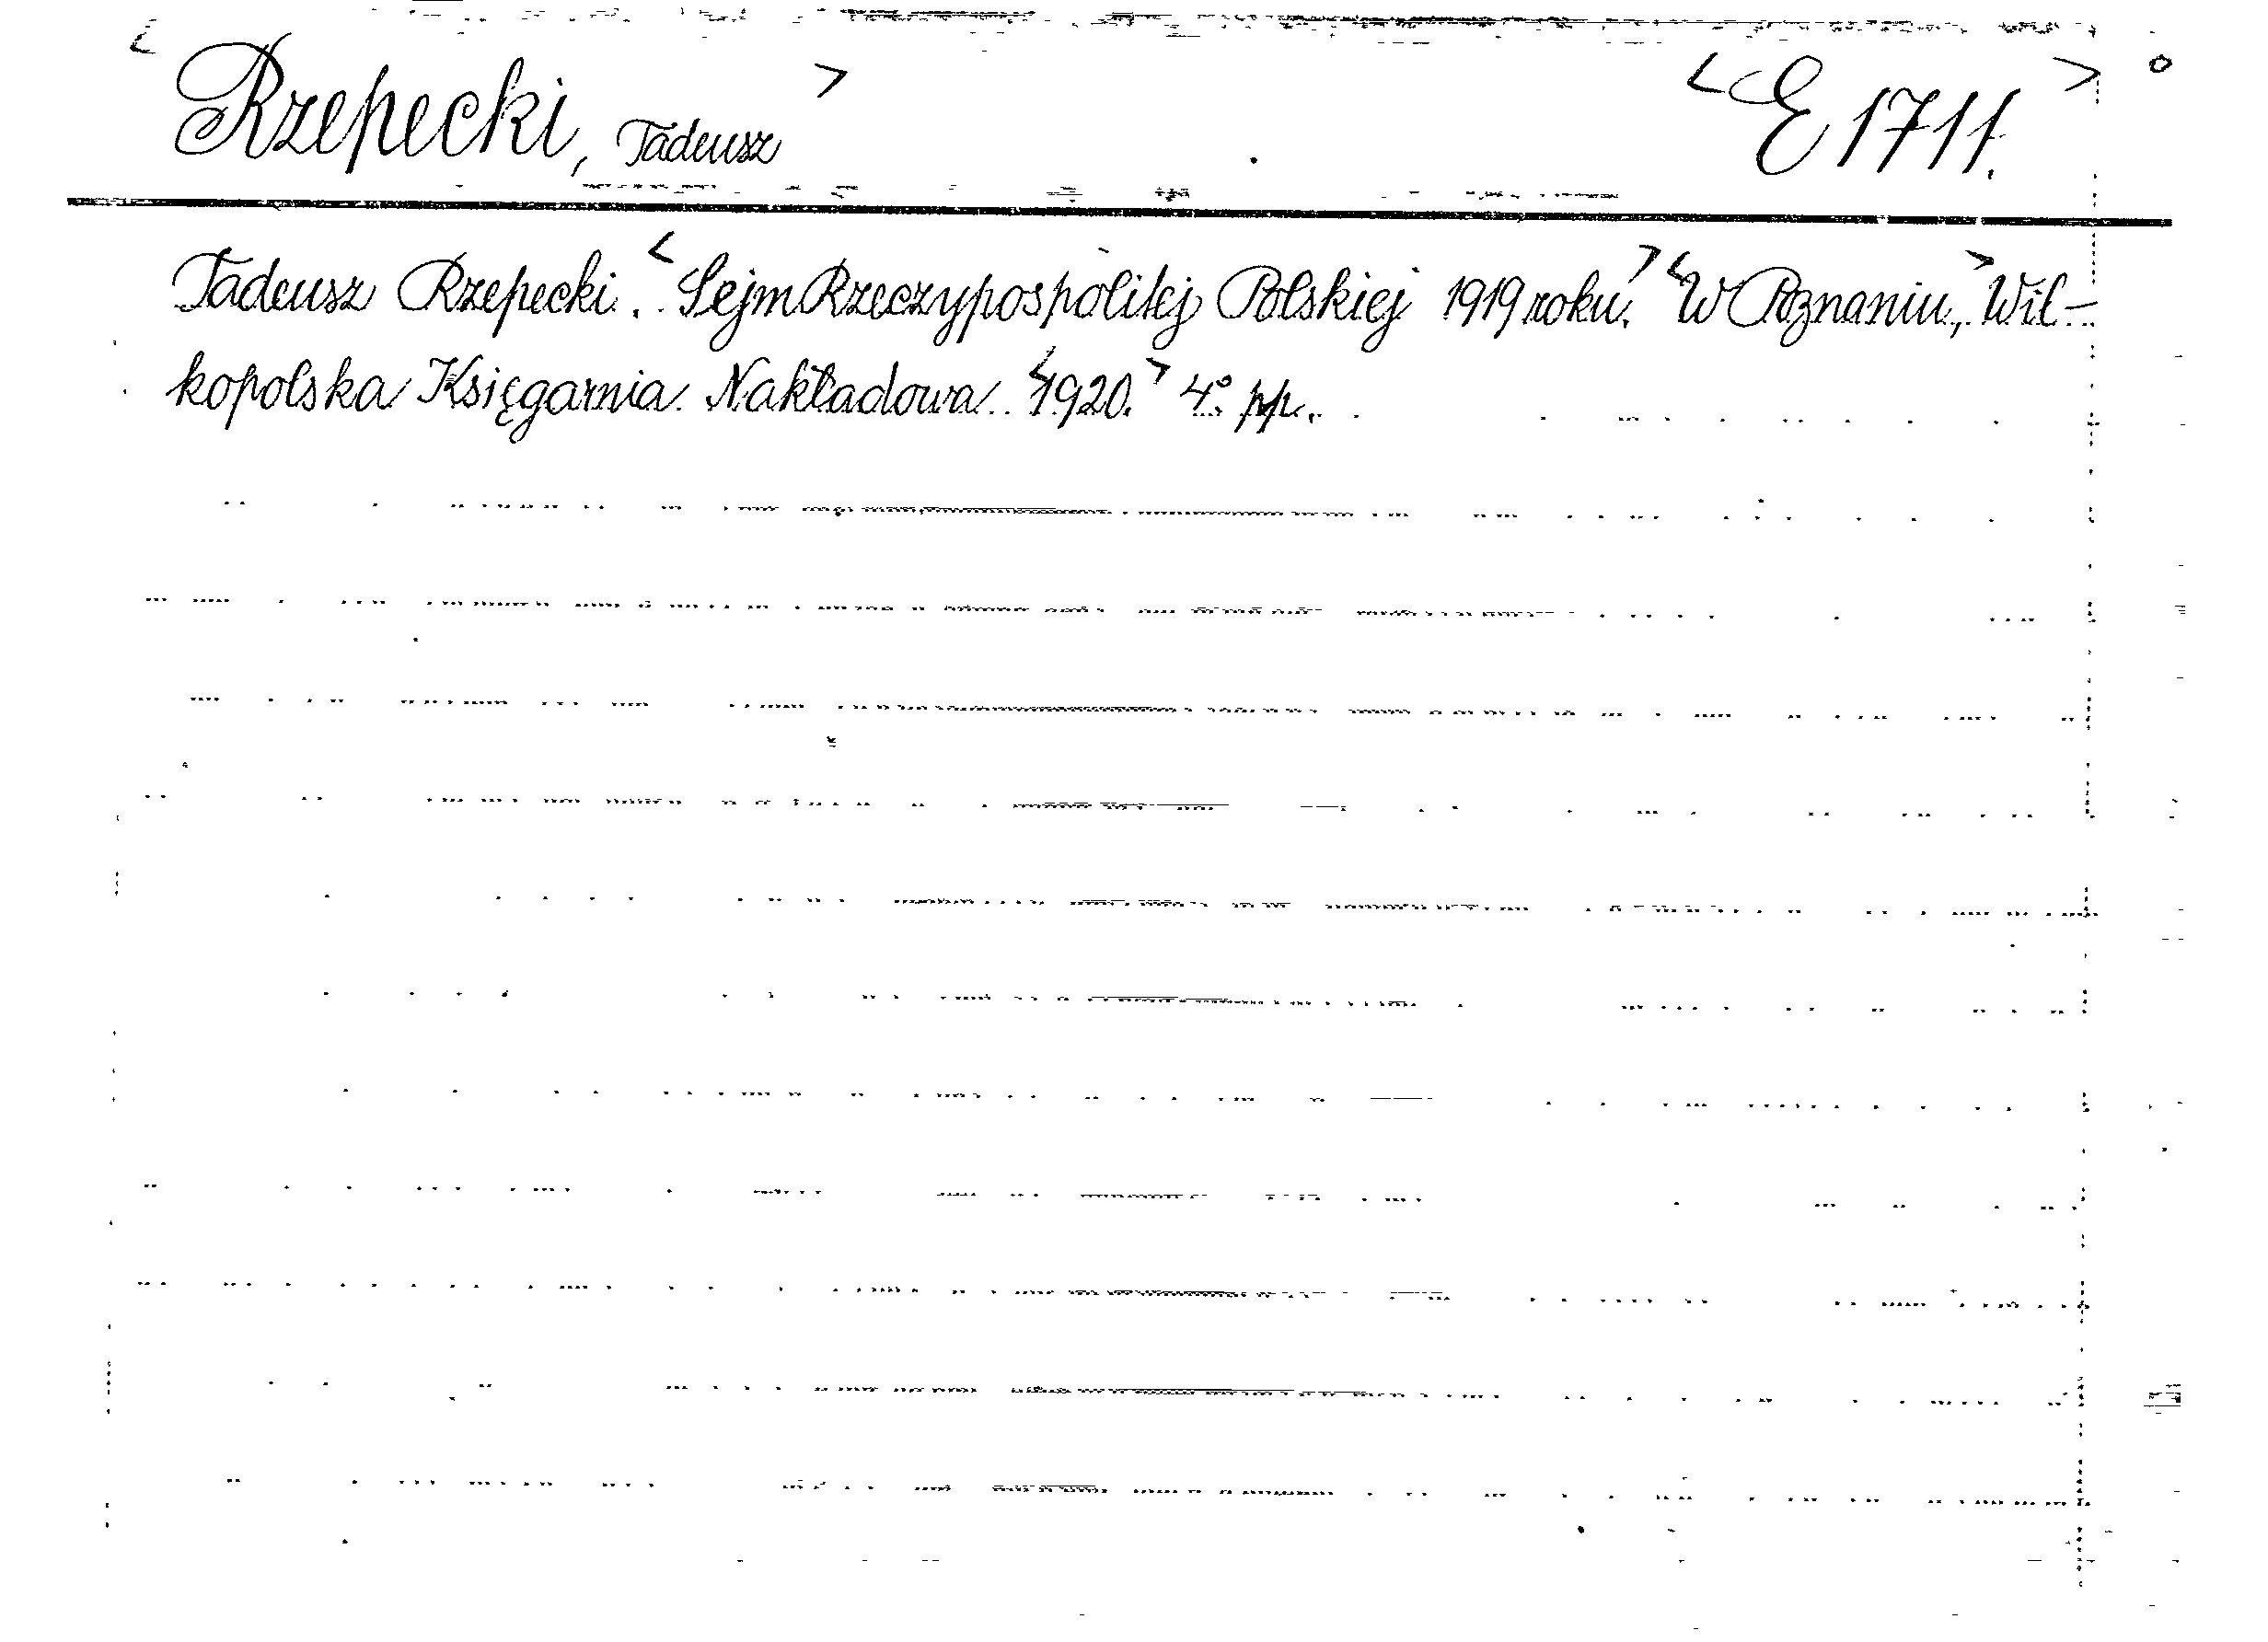 <Rzepecki, Tadeusz> <E 1711.>
Tadeusz Rzepecki. <Sejm Rzeczypospolitej Polskiej 1919 roku.> <W Poznaniu,> Wil-
kopolska Księgarnia Nakładowa. <1920.> 4° pp.